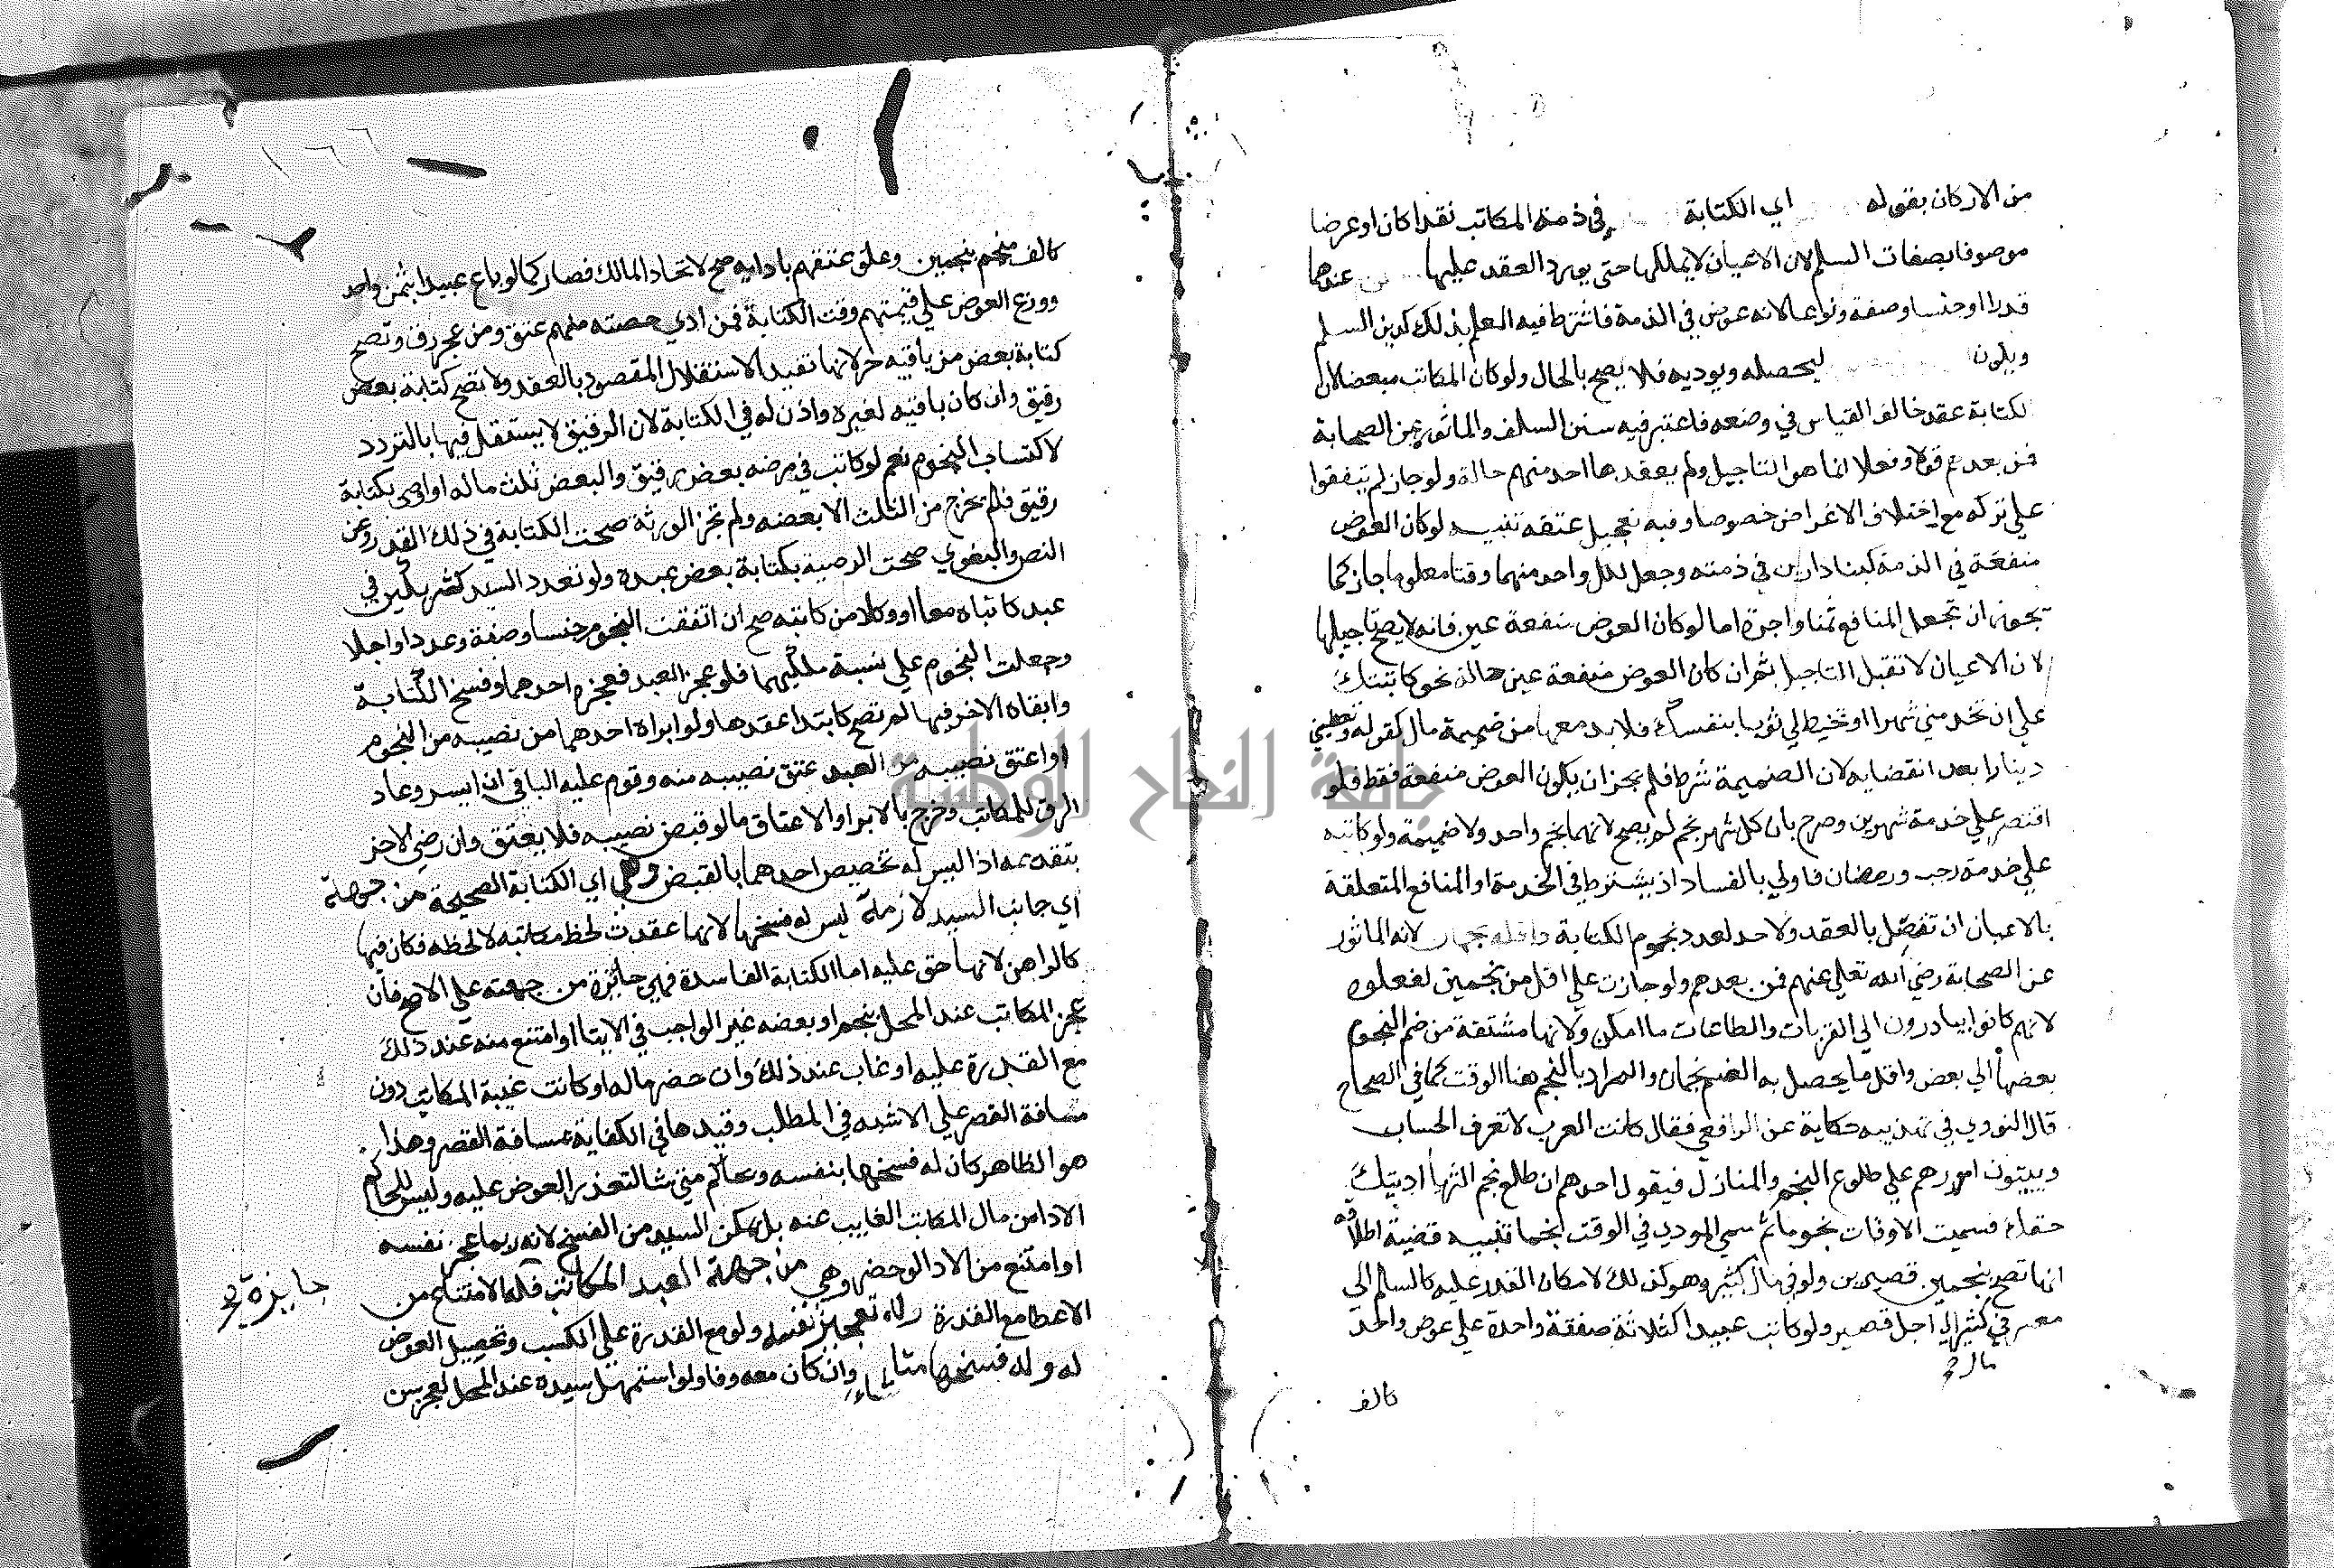 من الاركان بقوله اي الكتابة في ذمة المكاتب نقدا كان او عرضا
موصوفا بصفات السلم لان الاعيان لا يملكها حتى يورد العقد عليها عندهما
قدرا وجنسا وصفة ونوعا لانه عوض في الذمة فاشترط فيه العلم بذلك كدين السلم
ويكون ليحصله ويوديه فلا يصح بالحال ولو كان المكاتب مبعضا لان
لكتابة عقد خالف القياس في وضعه فاعتبر فيه سنن السلف والماثور عن الصحابة
فمن بعدهم قولا وفعلا انما هو التاجيل ولم يعقدها احد منهم حالة ولو جاز لم يتفقوا
علي تركه مع اختلاف الاغراض خصوصا وفيه تعجيل عتقه تنبيه لو كان العوض
منفعة في الذمة كبنا دارين في ذمته وجعل لكل واحد منهما وقتا معلوما جاز كما
يجوز ان تجعل المنافع ثمنا واجرة اما لو كان العوض منفعة عين فانه لا يصح تاجيلها
لان الاعيان لا تقبل التاجيل ثم ان كان العوض منفعة عين حالة نحو كاتبتك
علي ان تخدمني شهرا او تخيط لي ثوبا بنفسك فلا بد معها من ضميمة مال كقوله وتعطيني
دينارا بعد انقضايه لان الضميمة شرط فلم يجز ان يكون العوض منفعة فقط فلو
اقتصر علي خدمة شهرين وصرح بان كل شهر نجم لم يصح لانهما نجم واحد ولا ضميمة ولو كاتبه
علي خدمة رجب ورمضان فاولي بالفساد اذ يشترط في الخدمة والمنافع المتعلقة
بالاعيان ان تتصل بالعقد ولا حد لعدد نجوم الكتابة واقله نجمان لانه الماثور
عن الصحابة رضي الله تعلي عنهم فمن بعدهم ولو جازت علي اقل من نجمين لفعلوه
لانهم كانوا يبادرون الي القربات والطاعات ما امكن ولانها مشتقة من ضم النجوم
بعضها الي بعض واقل ما يحصل به الضم نجمان والمراد بالنجم هنا الوقت كما في الصحاح
قال النووي في تهذيبه حكاية عن الرافعي فقال كانت العرب لا تعرف الحساب
ويبنون امورهم علي طلوع النجم والمنازل فيقول احدهم ان طلع نجم الثريا اديتك
حقك فسميت الاوقات نجوما ثم سمي المودي في الوقت نجما تنبيه قضية اطلاقه
انها تصح بنجمين قصيرين ولو في مال كثير وهو كذلك لامكان القدرة عليه كالسلم الي
معسر في كثير الي اجل قصير ولو كاتب عبيدا كثلاثة صفقة واحدة علي عوض واحد
مال
كالف
كالف منجم بنجمين وعلق عتقهم بادايه صح لاتحاد المالك فصار كما لو باع عبيدا بثمن واحد
ووزع العوض علي قيمتهم وقت الكتابة فمن ادي حصته منهم عتق ومن عجز رق وتصح
كتابة بعض من باقيه حر لانها تفيد الاستقلال المقصود بالعقد ولا تصح كتابة بعض
رقيق وان كان باقيه لغيره واذن له في الكتابة لان الرقيق لا يستقل فيها بالتردد
لاكتساب النجوم نعم لو كاتب في مرضه بعض رقيق والبعض ثلث ماله او اوصى بكتابة
رقيق فلم يخرج من الثلث الا بعضه ولم تجز الورثة صحت الكتابة في ذلك القدر وعن
النص والبغوي صحت الوصية بكتابة بعض عبده ولو تعدد السيد كشريكين في
عبد كاتباه معا او وكلا من كاتبه صح ان اتفقت النجوم جنسا وصفة وعددا واجلا
وجعلت النجوم علي نسبة ملكيهما فلو عجز العبد فعجزه احدهما وفسخ الكتابة
وابقاه الاخر فيها لم تصح كابتدا عقدها ولو ابراه احدهما من نصيبه من النجوم
او اعتق نصيبه من العبد عتق نصيبه منه وقوم عليه الباقي ان ايسر وعاد
الرق للمكاتب وخرج بالابرا والاعتاق ما لو قبض نصيبه فلا يعتق وان رضي الاخر
بتقديمه اذ ليس له تخصيص احدهما بالقبض وهي اي الكتابة الصحيحة من جهة
اي جانب السيد لازمة ليس له فسخها لانها عقدت لحظ مكاتبه لا لحظه فكان فيها
كالراهن لانها حق عليه اما الكتابة الفاسدة فهي جائزة من جهته علي الاصح فان
عجز المكاتب عند المحل بنجم او بعضه غير الواجب في الايتا او امتنع منه عند ذلك
مع القدرة عليه او غاب عند ذلك وان حضر ماله او كانت غيبة المكاتب دون
مسافة القصر علي الاشبه في المطلب وقيدها في الكفاية بمسافة القصر وهذا
هو الظاهر كان له فسخها بنفسه وبحاكم متي شا لتعذر العوض عليه وليس للحاكم
الادا من مال المكاتب الغايب عنه بل يمكن السيد من الفسخ لانه ربما عجز نفسه
او امتنع من الادا لو حضر وهي من جهة العبد المكاتب فله الامتناع من
جايزة
الاعطا مع القدرة وله تعجيز نفسه ولو مع القدرة علي الكسب وتحصيل العوض
له وله فسخها متا شاء وان كان معه وفا ولو استمهل سيده عند المحل لعجز سن
جامعة النجاح الوطنية